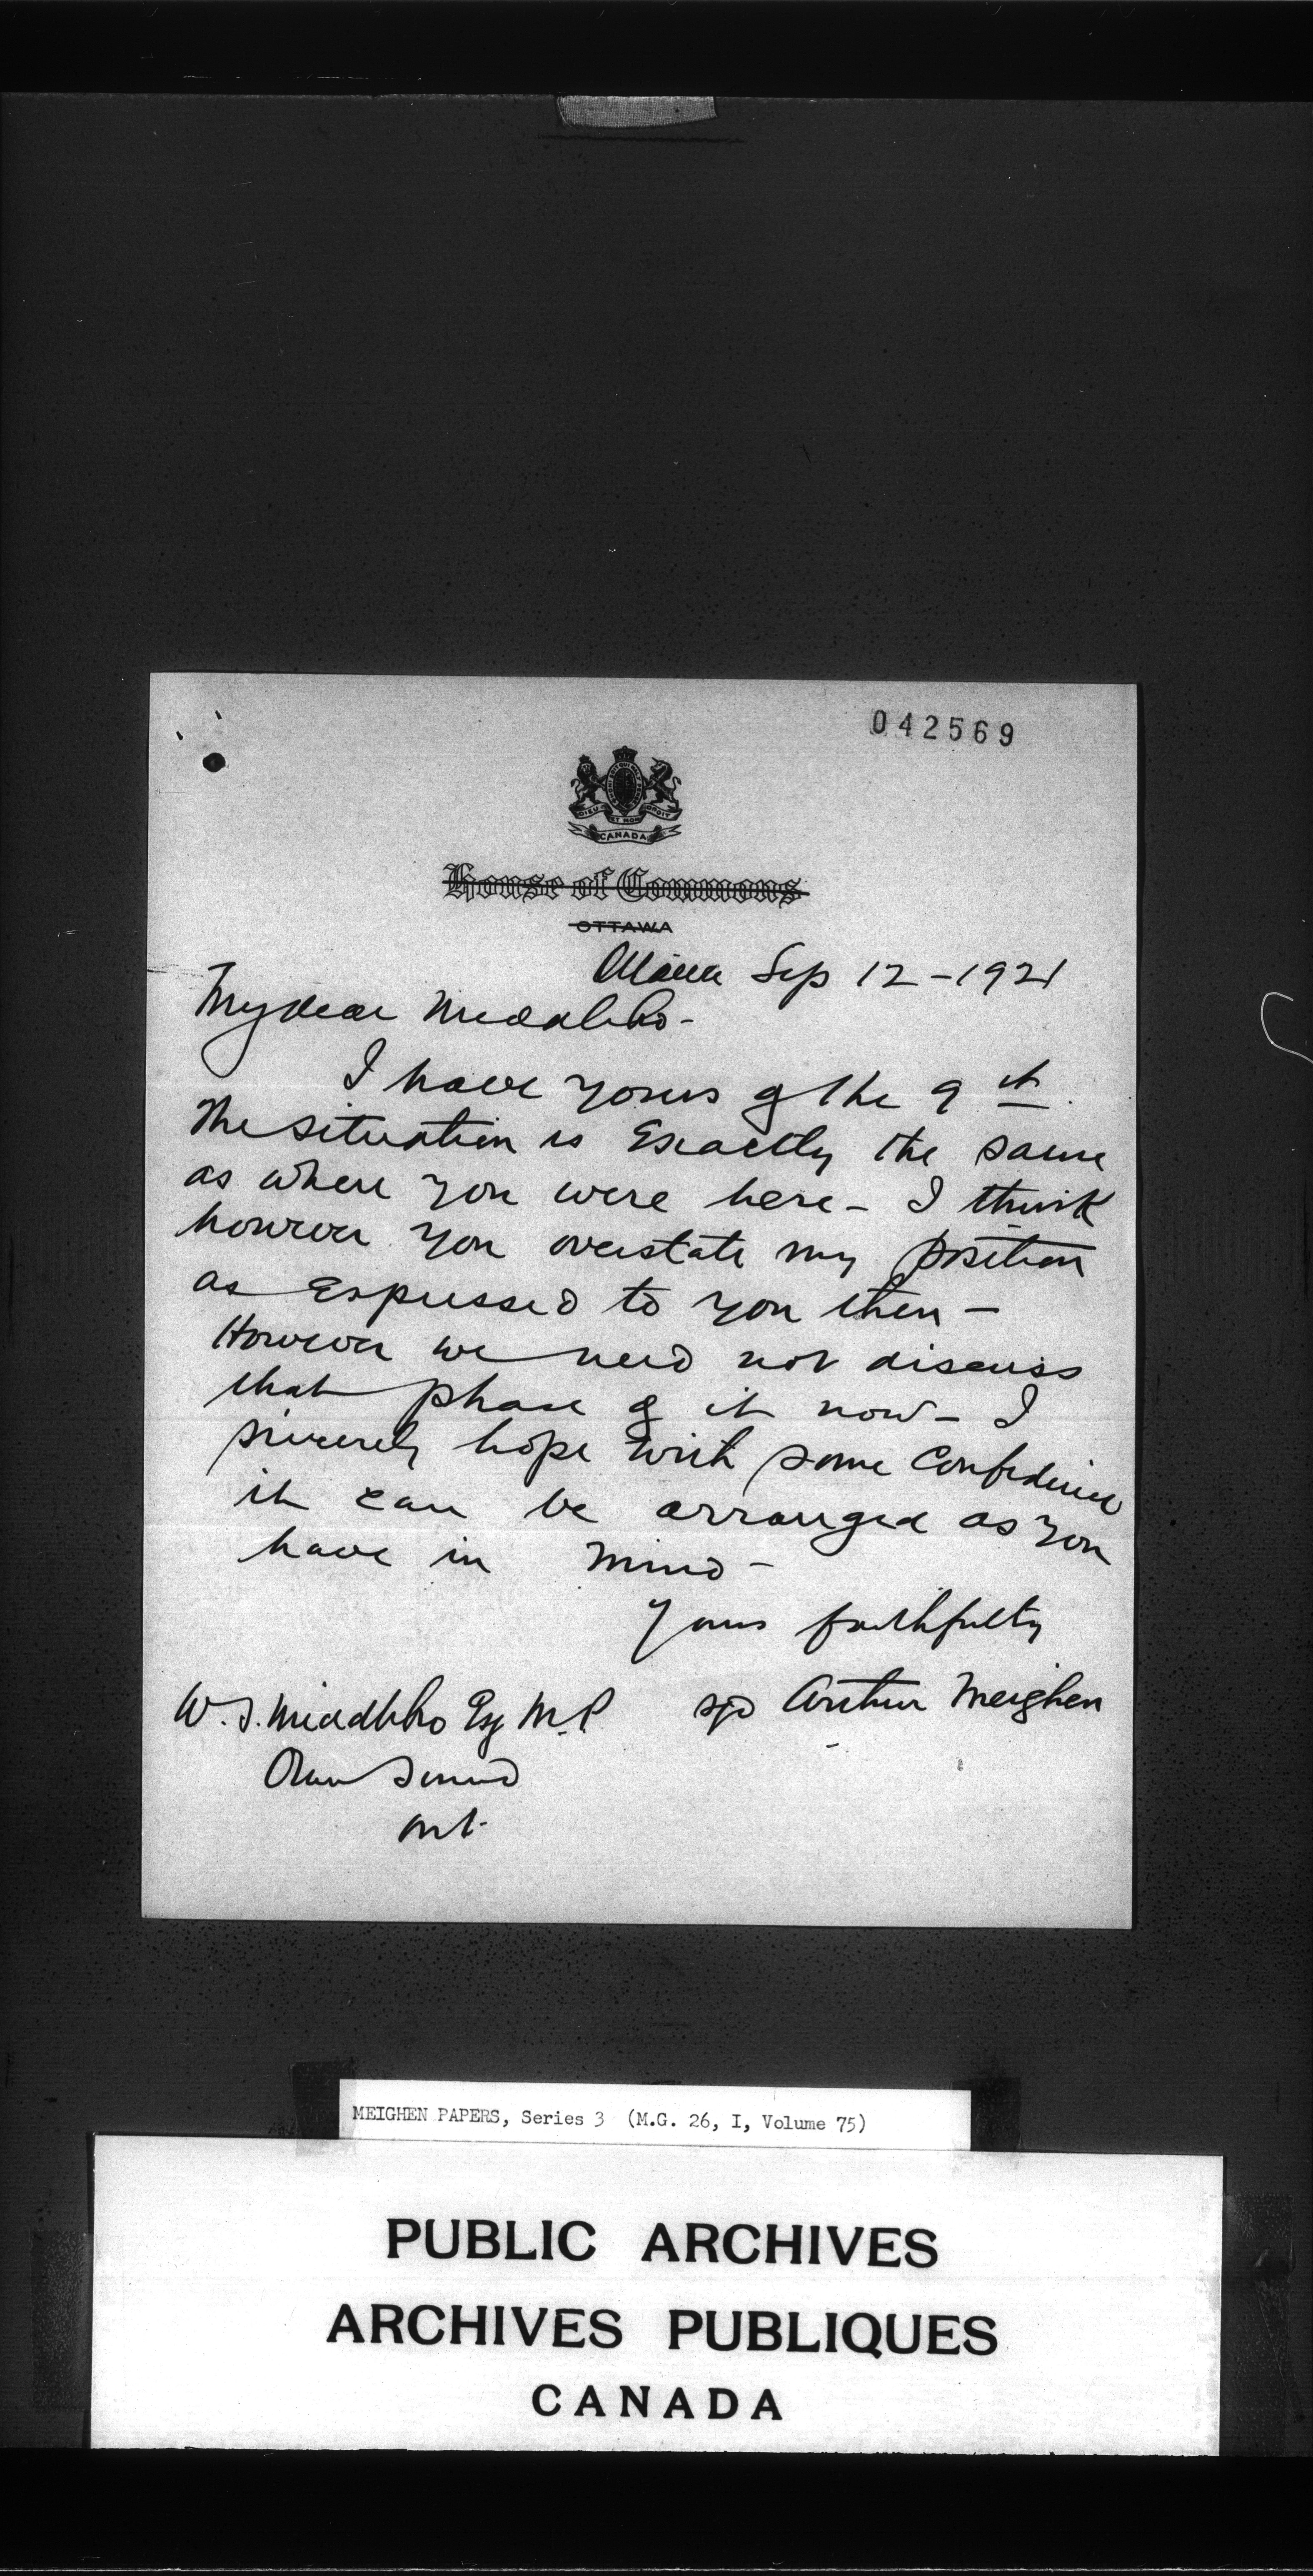 042569
DIEU ET MON DROIT
CANADA
House of Commons
OTTAWA
Ottawa Sep 12 - 1921
My dear Middlebro -
I have yours of the 9th.
The situation is Exactly the same
as when you were here - I think
however you overstate my position
as Expressed to you then -
However we need not discuss
that phase of it now - I
sincerely hope with some Confidence
it can be arranged as you
have in mind -
Yours faithfully
sgd Arthur Meighen
W.S. Middlebro Esq M.P.
Owen Sound
Ont.
MEIGHEN PAPERS, Series 3 (M.G. 26, I, Volume 75)
PUBLIC ARCHIVES
ARCHIVES PUBLIQUES
CANADA